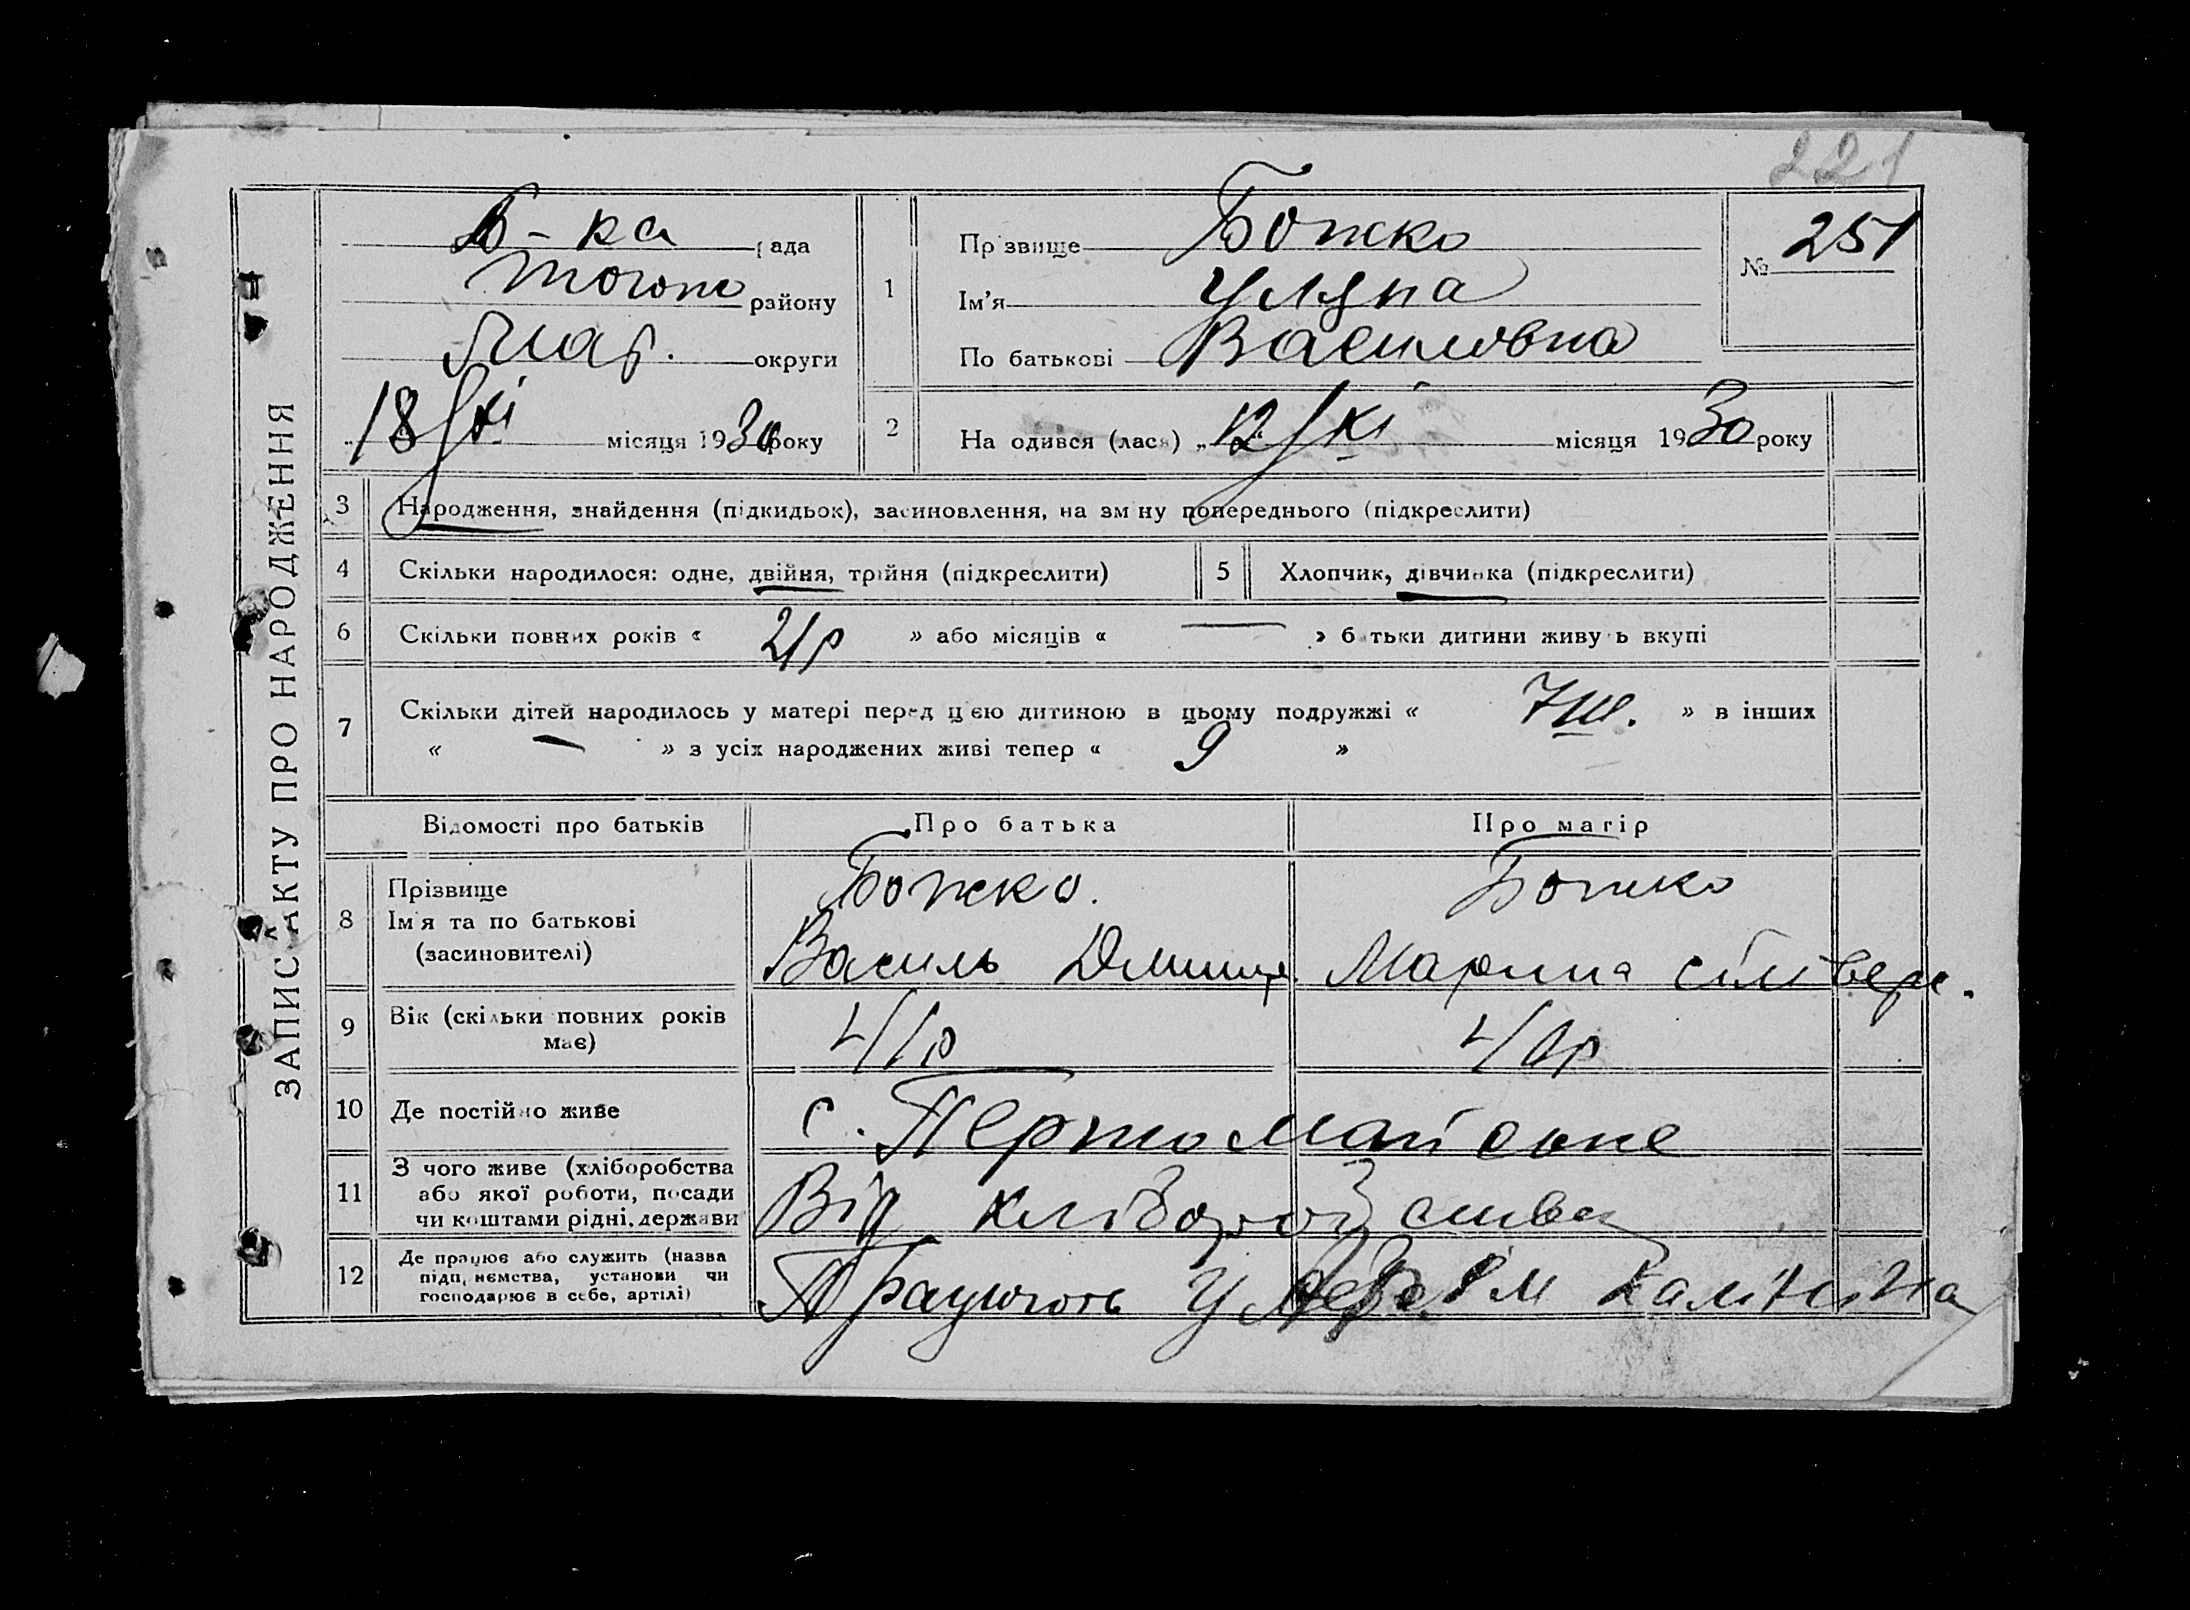 221
ЗАПИС АКТУ ПРО НАРОДЖЕННЯ
Б-ка рада
району
округи
18/XI місяця 1930 року
1
Прізвище Божко
Ім'я Уляна
По батькові Василовна
№ 251
2
На одився (лася) „12/XI місяця 1930 року
3 Народження, знайдення (підкидьок), засиновлення, на зміну попереднього (підкреслити)
4 Скільки народилося: одне, двійня, трійня (підкреслити)
5 Хлопчик, дівчинка (підкреслити)
6 Скільки повних років « 21р » або місяців « — » батьки дитини живуть вкупі
7 Скільки дітей народилось у матері перед цією дитиною в цьому подружжі « » в інших
« — » з усіх народжених живі тепер « 9 »
Відомості про батьків Про батька Про матір
8 Прізвище
Ім'я та по батькові
(засиновителі)
Божко.
Василь
Божко
Марина
9 Вік (скільки повних років
має)
41р
10 Де постійно живе
с. Первомайське
11 З чого живе (хліборобства
або якої роботи, посади
чи коштами рідні, держави
Від
12 Де працює або служить (назва
підприємства, установи чи
господарює в себе, артілі)
Працюють у Калініна